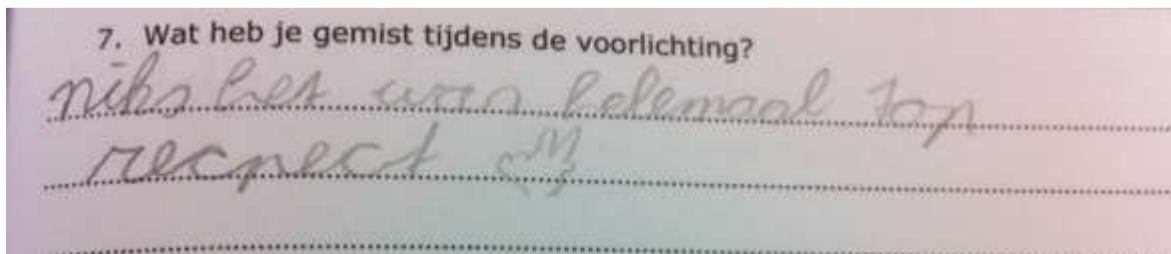 7. Wat heb je gemist tijdens de voorlichting?
niks het was helemaal top
recpect